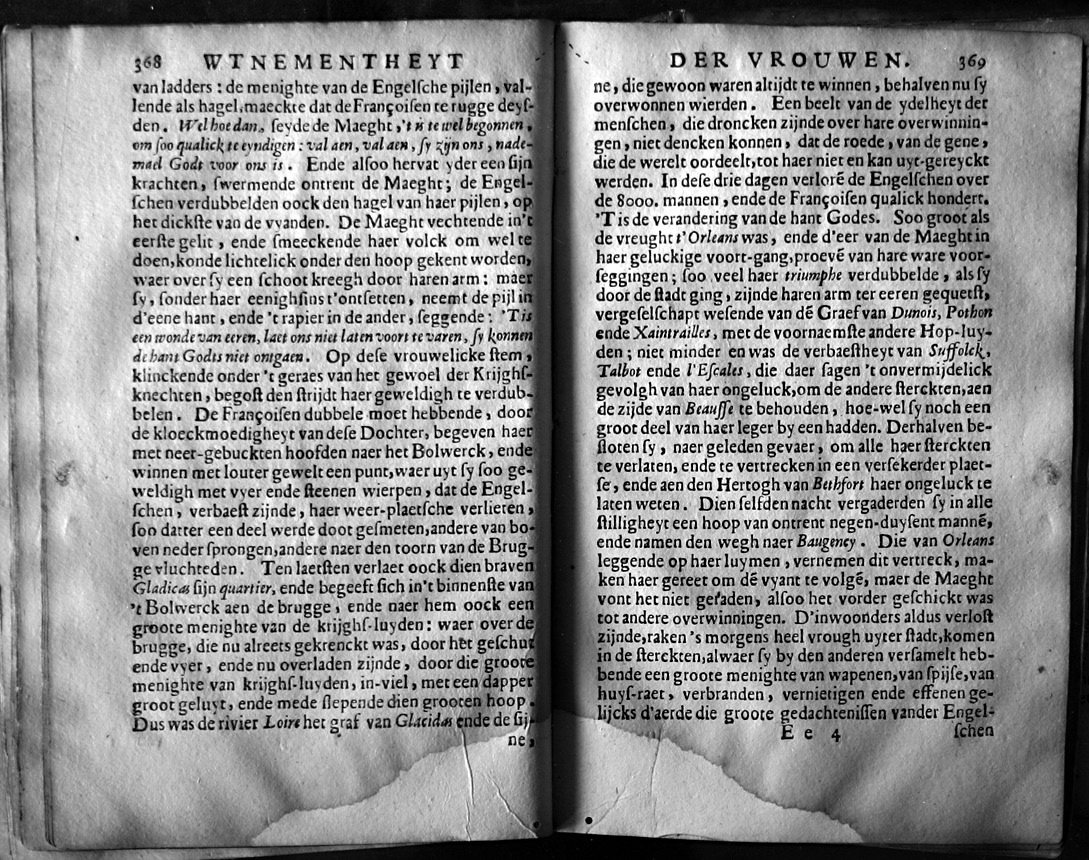 368 WTNEMENTHEYT
van ladders : de menighte van de Engelſche pijlen, val-
lende als hagel, maeckte dat de Françoiſen te rugge deyſ-
den. Wel hoe dan, ſeyde de Maeght, 't is te wel begonnen,
om ſoo qualick te eyndigen : val aen, val aen, ſy zijn ons, nade-
mael Godt voor ons is. Ende alſoo hervat yder een ſijn
krachten, ſwermende ontrent de Maeght; de Engel-
ſchen verdubbelden oock den hagel van haer pijlen, op
het dickſte van de vyanden. De Maeght vechtende in't
eerſte gelit, ende ſmeeckende haer volck om wel te
doen, konde lichtelick onder den hoop gekent worden,
waer over ſy een ſchoot kreegh door haren arm: maer
ſy, ſonder haer eenighſins t'ontſetten, neemt de pijl in
d'eene hant, ende 't rapier in de ander, ſeggende: 'T is
een wonde van eeren, laet ons niet laten voort te varen, ſy konnen
de hant Godts niet ontgaen. Op deſe vrouwelicke ſtem,
klinckende onder 't geraes van het gewoel der Krijghſ-
knechten, begoſt den ſtrijdt haer geweldigh te verdub-
belen. De Françoiſen dubbele moet hebbende, door
de kloeckmoedigheyt van deſe Dochter, begeven haer
met neer-gebuckten hoofden naer het Bolwerck, ende
winnen met louter gewelt een punt, waer uyt ſy ſoo ge-
weldigh met vyer ende ſteenen wierpen, dat de Engel-
ſchen, verbaeſt zijnde, haer weer-plaetſche verlieten,
ſoo datter een deel werde doot geſmeten, andere van bo-
ven neder ſprongen, andere naer den toorn van de Brug-
ge vluchteden. Ten laetſten verlaet oock dien braven
Gladicas ſijn quartier, ende begeeft ſich in't binnenſte van
't Bolwerck aen de brugge, ende naer hem oock een
groote menighte van de krijghſ-luyden: waer over de
brugge, die nu alreets gekrenckt was, door het geſchut
ende vyer, ende nu overladen zijnde, door die groote
menighte van krijghſ-luyden, in-viel, met een dapper
groot geluyt, ende mede ſlepende dien grooten hoop.
Dus was de rivier Loire het graf van Glacidas ende de ſij-
ne,
DER VROUWEN. 369
ne, die gewoon waren altijdt te winnen, behalven nu ſy
overwonnen wierden. Een beelt van de ydelheyt der
menſchen, die droncken zijnde over hare overwinnin-
gen, niet dencken konnen, dat de roede, van de gene,
die de werelt oordeelt, tot haer niet en kan uyt-gereyckt
werden. In deſe drie dagen verlorē de Engelſchen over
de 8000. mannen, ende de Françoiſen qualick hondert.
'T is de verandering van de hant Godes. Soo groot als
de vreught t' Orleans was, ende d'eer van de Maeght in
haer geluckige voort-gang, proevē van hare ware voor-
ſeggingen; ſoo veel haer triumphe verdubbelde, als ſy
door de ſtadt ging, zijnde haren arm ter eeren gequetſt,
vergeſelſchapt weſende van dē Graef van Dunois, Pothon
ende Xaintrailles, met de voornaemſte andere Hop-luy-
den; niet minder en was de verbaeſtheyt van Suffolck,
Talbot ende l'Eſcales, die daer ſagen 't onvermijdelick
gevolgh van haer ongeluck, om de andere ſterckten, aen
de zijde van Beauſſe te behouden, hoe-wel ſy noch een
groot deel van haer leger by een hadden. Derhalven be-
ſloten ſy, naer geleden gevaer, om alle haer ſterckten
te verlaten, ende te vertrecken in een verſekerder plaet-
ſe, ende aen den Hertogh van Bethfort haer ongeluck te
laten weten. Dien ſelfden nacht vergaderden ſy in alle
ſtilligheyt een hoop van ontrent negen-duyſent mannē,
ende namen den wegh naer Baugency. Die van Orleans
leggende op haer luymen, vernemen dit vertreck, ma-
ken haer gereet om dē vyant te volgē, maer de Maeght
vont het niet geraden, alſoo het vorder geſchickt was
tot andere overwinningen. D'inwoonders aldus verloſt
zijnde, raken 's morgens heel vrough uyter ſtadt, komen
in de ſterckten, alwaer ſy by den anderen verſamelt heb-
bende een groote menighte van wapenen, van ſpijſe, van
huyſ-raet, verbranden, vernietigen ende effenen ge-
lijcks d'aerde die groote gedachteniſſen vander Engel-
E e 4 ſchen